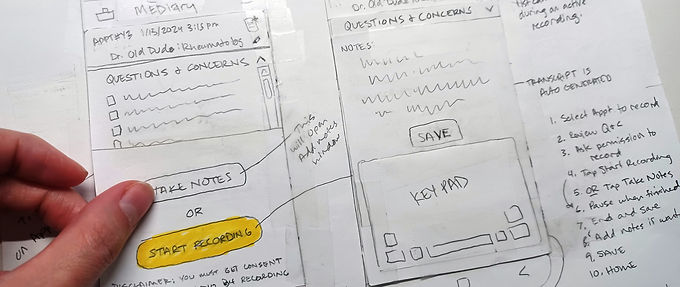 MEDIARY
APPT #3 1/13/2024 3:15 pm
Dr. Old Dude: Rheumatolog
QUESTIONS & CONCERNS
TAKE NOTES
OR
START RECORDING
DISCLAIMER: YOU MUST GET CONSENT
RECORDING
This
will open
Add notes
window
Dr. Old Dude: Rheumatolog
QUESTIONS & CONCERNS
NOTES:
SAVE
KEYPAD
during an active
recording.
TRANSCRIPT IS
AUTO GENERATED
1. Select Appt to record
2. Review Q&C
3. Ask permission to
record
4. Tap Start Recording
5. OR Tap Take Notes
6. Pause when finished
7. End and Save
8. Add notes if want
9. SAVE
10. HOME